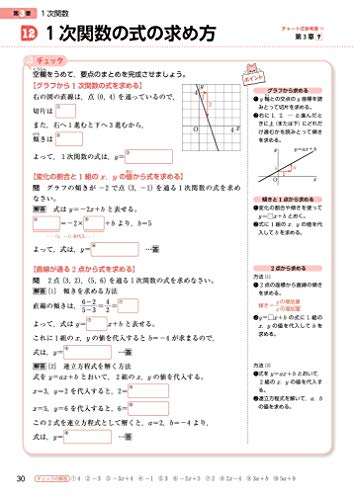 第3章 1次関数
12 1次関数の式の求め方
チャート式参考書 >>
第3章 7
チェック
空欄をうめて，要点のまとめを完成させましょう。
【グラフから1次関数の式を求める】
右の図の直線は，点(0, 4)を通っているので，
切片は ①
また，右へ1進むと下へ3進むから，
傾きは ②
よって，求める式は，y=③
O 4 x
y
4
ポイント
グラフから求める
❶y軸との交点のy座標を読みとって切片を求める。
❷右に1，2，… と進んだときに上(または下)にどれだけ進むかを読みとって傾きを求める。
y=ax+b
【変化の割合と1組のx，yの値から式を求める】
問 グラフの傾きが −2で点(3, −1)を通る1次関数の式を求めなさい。
解答 式は y=−2x+b と表せる。
④=−2×⑤+b より，b=5
よって，求める式は，y=⑥ …答
傾きと1点から求める
❶変化の割合や傾きを使って y=□x+b とおく。
❷式に1組のx，yの値を代入してbを求める。
【直線が通る2点から式を求める】
問 2点(3, 2)，(5, 6)を通る1次関数の式を求めなさい。
解答 [1] 傾きを求める方法
直線の傾きは，6−2/5−3=4/2=⑦
よって，求める式は y=⑦x+b と表せる。
これに1組のx，yの値を代入すると b=−4 が求まるので，
式は，y=⑧ …答
解答 [2] 連立方程式を解く方法
式を y=ax+b とおいて，2組のx，yの値を代入する。
x=3，y=2を代入すると，2=⑨
x=5，y=6を代入すると，6=⑩
この2式を連立方程式として解くと，a=2，b=−4 より，
式は，y=⑧ …答
2点から求める
方法[1]
❶2点の座標から直線の傾きを求める。
傾き=yの増加量/xの増加量
❷y=□x+b の式に1組のx，yの値を代入してbを求める。
方法[2]
❶式を y=ax+b とおいて，2組のx，yの値を代入する。
❷連立方程式を解いて，a，bの値を求める。
30
チェックの解答 ①4 ②−3 ③−3x+4 ④−1 ⑤3 ⑥−2x+5 ⑦2 ⑧2x−4 ⑨3a+b ⑩5a+b